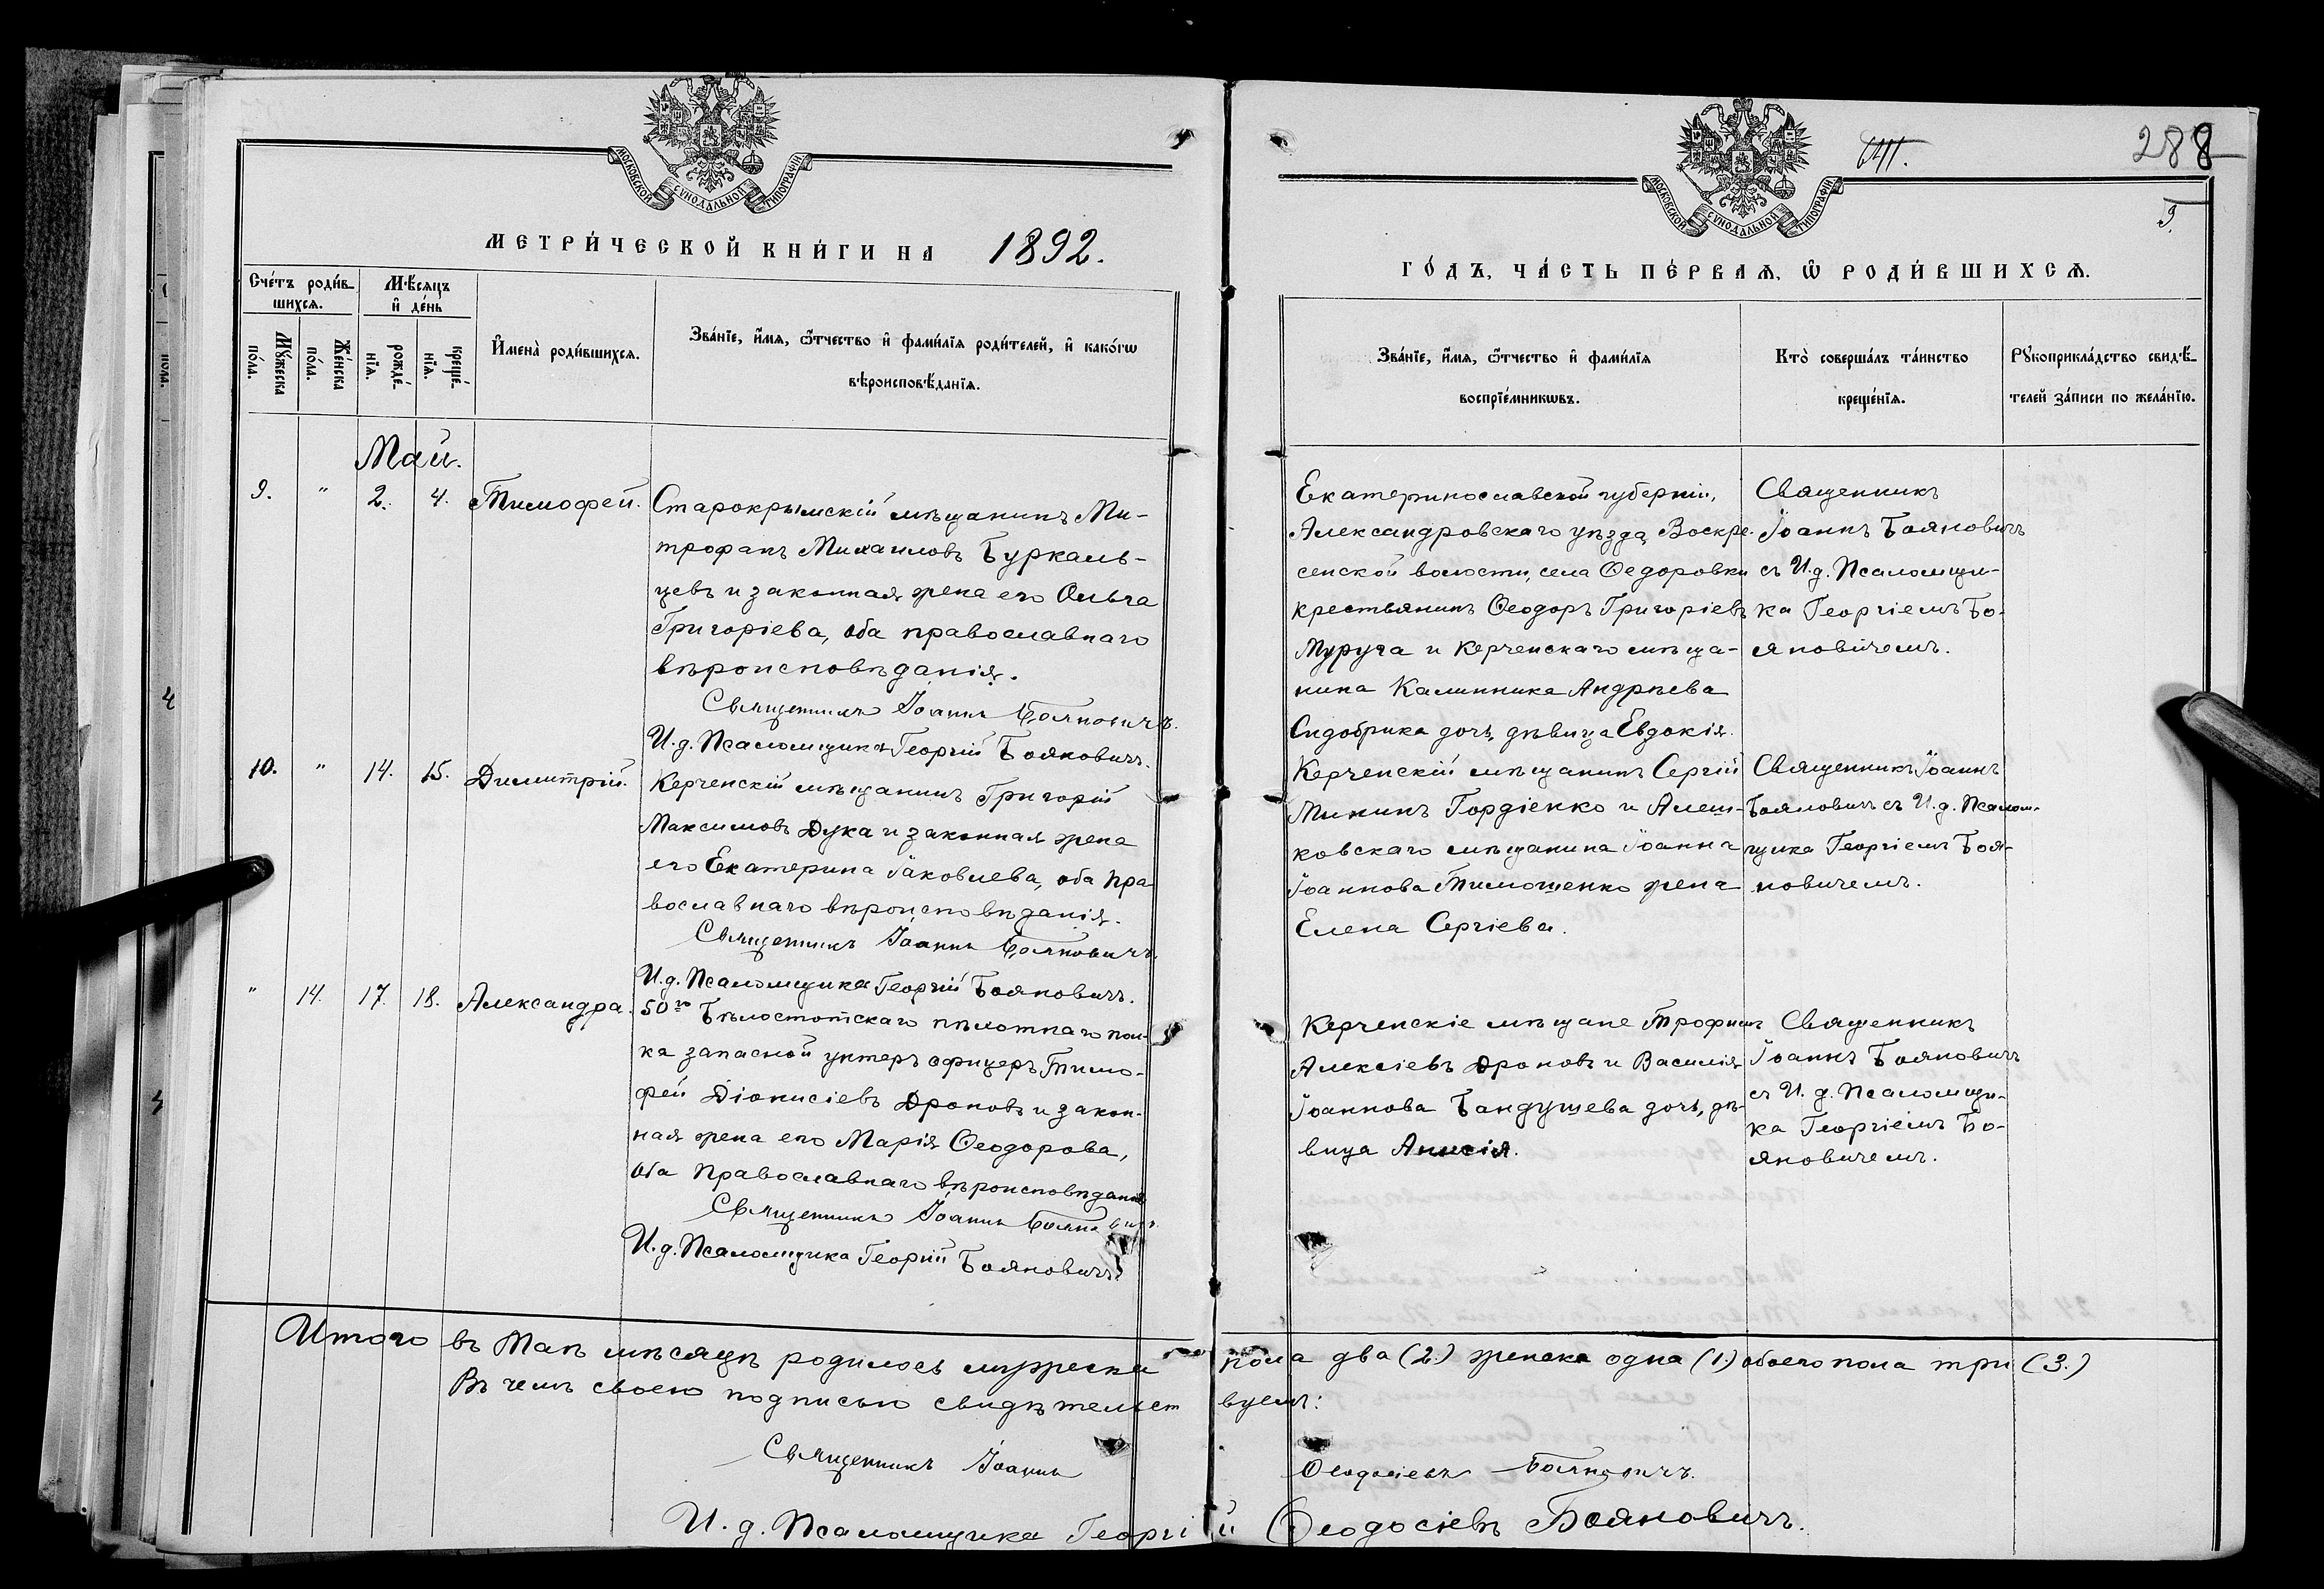 МОСКОВСКОЙ СѴНОДАЛЬНОЙ ТИПОГРАФІИ
МЕТРИ́ЧЕСКОЙ КНИ́ГИ НА 1892.
Сче́тъ роди́в-
шихсѧ.
Мѣ́сѧцъ
и҆ де́нь
И҆мена̀ роди́вшихсѧ.
Зва́нїе, и҆́мѧ, ѻ҆́тчество и҆ фами́лїѧ роди́телей, и҆ како́гѡ
вѣроисповѣ́данїѧ.
Мꙋ́жеска
по́ла.
Же́нска
по́ла.
рожде́-
нїѧ.
креще́-
нїѧ.
Май.
9. " 2. 4. Тимофей. Старокрымскій мѣщанинъ Ми-
трофанъ Михаиловъ Буркаль-
цевъ и законная жена его Ольга
Григоріева, оба православнаго
вѣроисповѣданія.
Священникъ Іоаннъ Бояновичъ.
И.д. Псаломщика Георгій Бояновичъ.
10. " 14. 15. Димитрій. Керченскій мѣщанинъ Григорій
Максимовъ Дука и законная жена
его Екатерина Іаковлева, оба пра-
вославнаго вѣроисповѣданія.
Священникъ Іоаннъ Бояновичъ.
И.д. Псаломщика Георгій Бояновичъ.
" 14. 17. 18. Александра. 50го Бѣлостотскаго пѣхотнаго пол-
ка запасной унтеръ офицеръ Тимо-
фей Діонисіевъ Дроновъ и закон-
ная жена его Марія Ѳеодорова,
оба православнаго вѣроисповѣданія
Священникъ Іоаннъ Бояновичъ.
И.д. Псаломщика Георгій Бояновичъ.
Итого въ Маѣ мѣсяцѣ родилось мужеска
Въ чемъ своею подписью свидѣтельст
Священникъ Іоаннъ
И. д. Псаломщика Георгі
288
9
МОСКОВСКОЙ СѴНОДАЛЬНОЙ ТИПОГРАФІИ
ГО́ДЪ, ЧА́СТЬ ПЕ́РВАѦ, Ѡ҆ РОДИ́ВШИХСѦ.
Зва́нїе, и҆́мѧ, ѻ҆́тчество и҆ фами́лїѧ
воспрїе́мникѡвъ.
Кто̀ соверша́лъ та́инство
креще́нїѧ.
Рꙋкоприкла́дство свидѣ́-
телей за́писи по жела́нїю.
Екатеринославской губерніи,
Александровскаго уѣзда, Воскре-
сенской волости, села Ѳедоровки
крестьянинъ Ѳеодоръ Григоріевъ
Муруга и Керченскаго мѣща-
нина Калинника Андрѣева
Сидобрика дочь, дѣвица Евдокія.
Священникъ
Іоаннъ Бояновичъ
съ И.д. Псаломщи-
ка Георгіемъ Бо-
яновичемъ.
Керченскій мѣщанинъ Сергій
Мининъ Гордіенко и Алеш-
ковскаго мѣщанина Іоанна
Іоаннова Тимошенко жена
Елена Сергіева.
Священникъ Іоаннъ
Бояновичъ съ И.д. Псалом-
щика Георгіемъ Боя-
новичемъ.
Керченскіе мѣщане Трофимъ
Алексіевъ Дроновъ и Василія
Іоаннова Бандушева дочь, дѣ-
вица Анисія.
Священникъ
Іоаннъ Бояновичъ
съ И. д. Псаломщи-
ка Георгіемъ Бо-
яновичемъ.
пола два (2.) женска одна (1.) обоего пола три (3.)
вуемъ:
Ѳеодосіевъ Бояновичъ.
й Ѳеодосіевъ Бояновичъ.